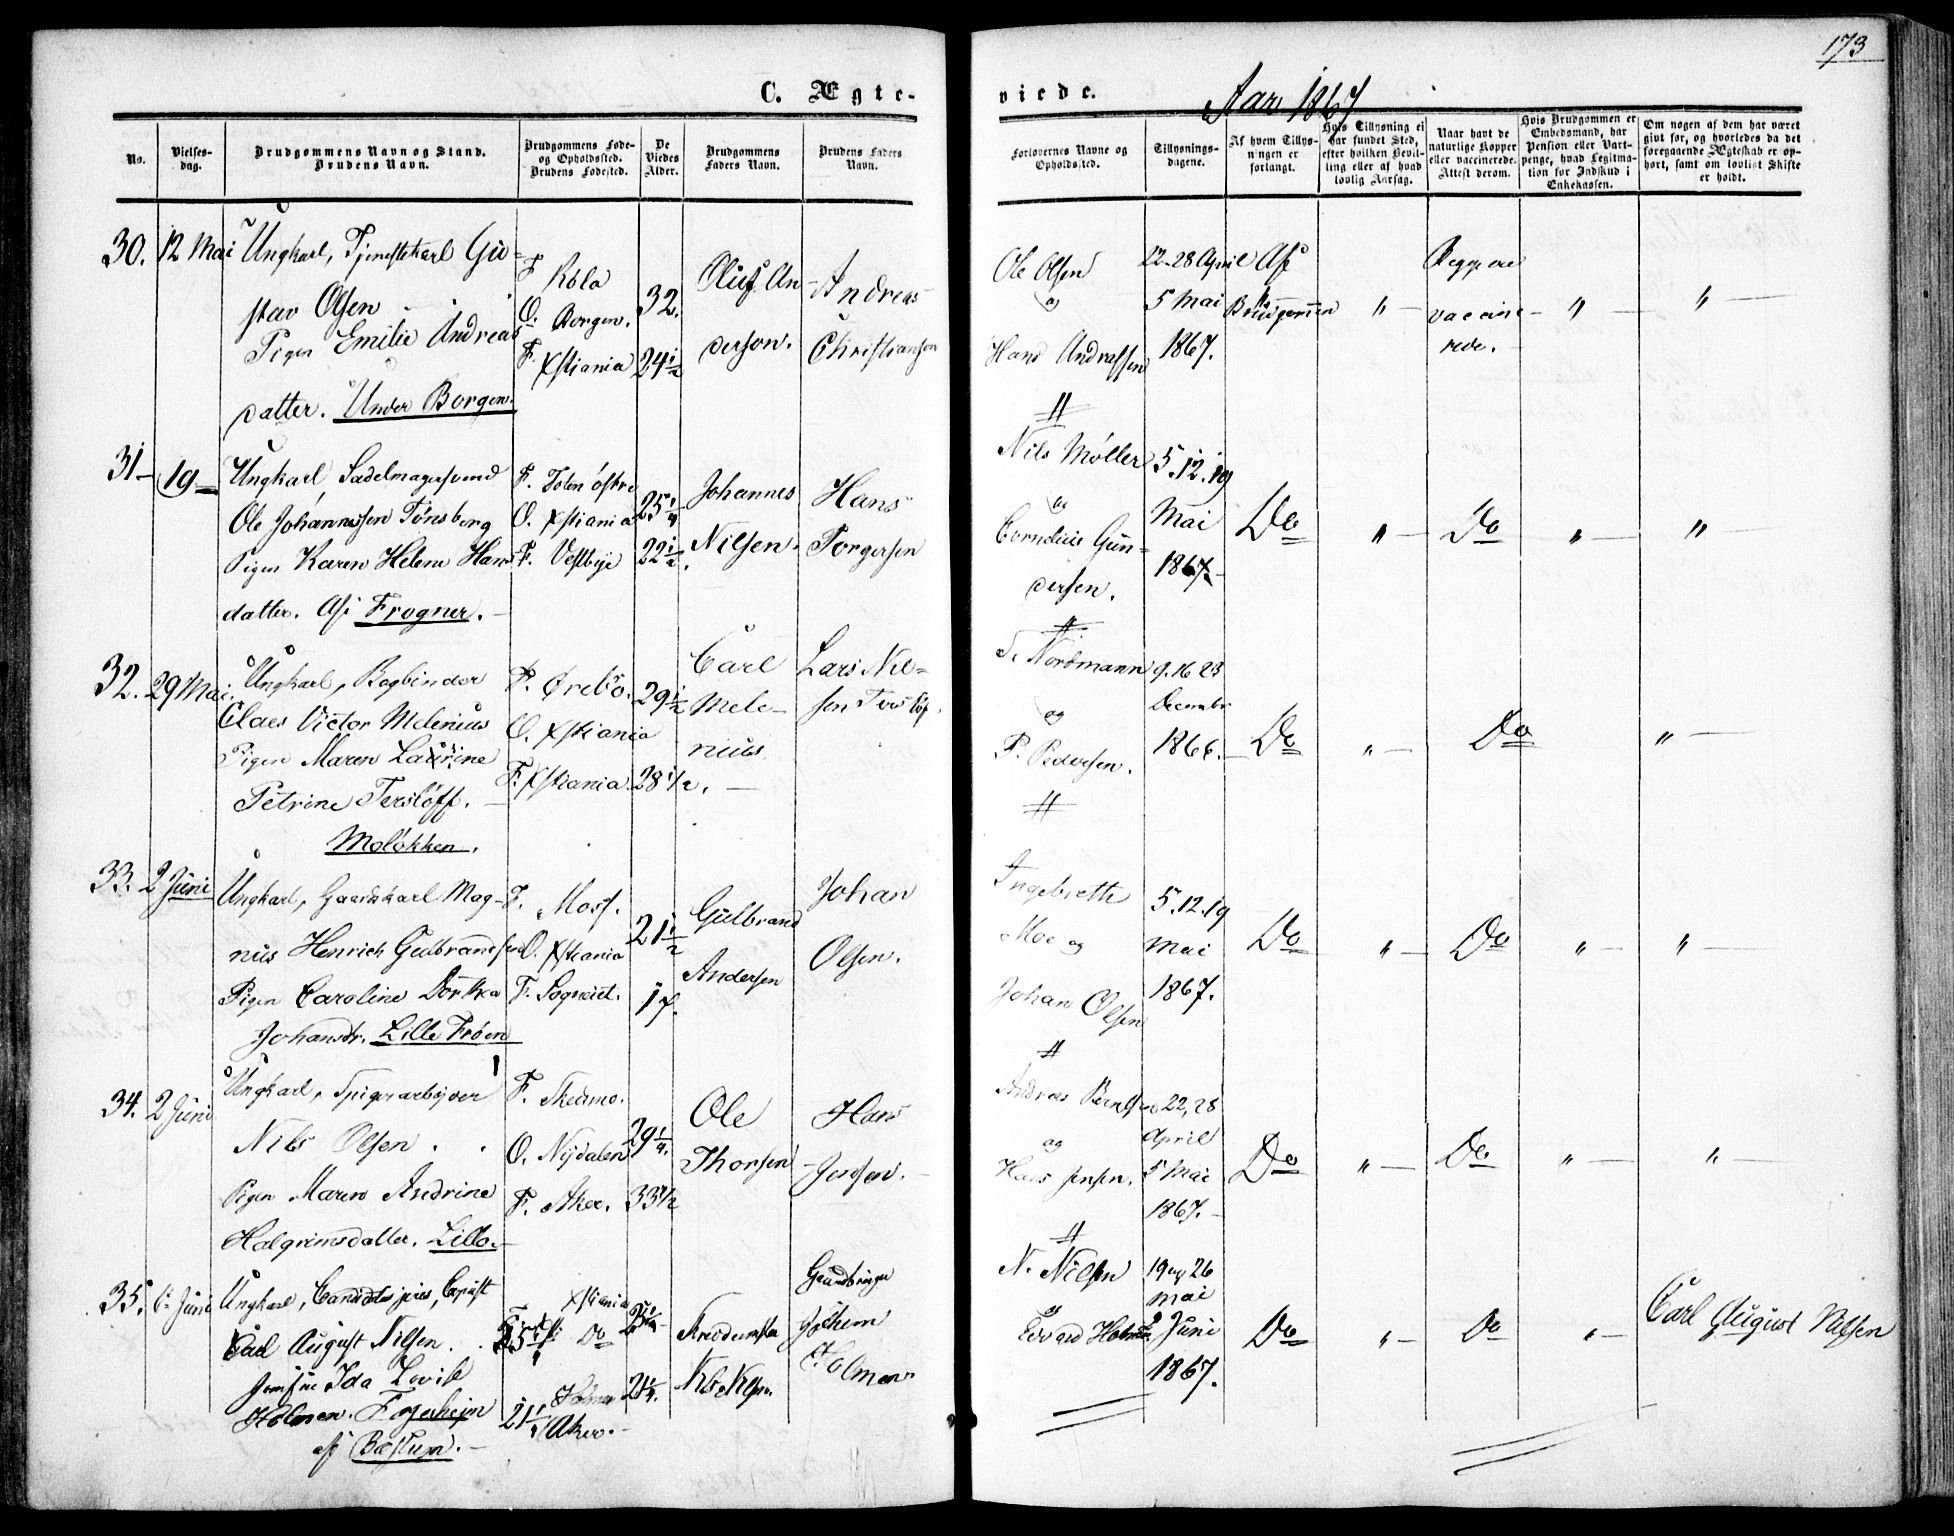 173
C. Ægte-
viede.
Aar 1867
No.
Vielses-
dag.
Brudgommens Navn og Stand.
Brudens Navn.
Brudgommens Føde-
og Opholdssted.
Brudens Fødested.
De
Viedes
Alder.
Brudgommens
Faders Navn.
Brudens Faders
Navn.
Forlovernes Navne og
Opholdssted.
Tillysnings-
dagene.
Af hvem Tillys-
ningen er
forlangt.
Hvis Tillysning ei
har fundet Sted,
efter hvilken Bevil-
ling eller af hvad
lovlig Aarsag.
Naar havt de
naturlige Kopper
eller vaccinerede.
Attest derom.
Hvis Brudgommen er
Embedsmand, har
Pension eller Vart-
penge, hvad Legitima-
tion for Indskud i
Enkekassen.
Om nogen af dem har været
gift før, og hvorledes da det
foregaaende Ægteskab er op-
hørt, samt om lovligt Skifte
er holdt.
30. 12 Mai
Ungkarl, Tjenestekarl Gu-
stav Olsen
Pigen Emilie Andreas
datter. Under Borgen.
F. Kola
O. Borgen.
F. Xstiania
32.
24 1/2
Oluf An-
derson.
Andreas
Christiansen
Ole Olsen
og
Hans Andressen
22-28 April
5 Mai
1867.
Af
Brudgommen
"
Begge ere
vaccine-
rede.
"
"
31- 19-
Ungkarl Sadelmagersvend
Ole Johannessen Tønsberg
Pigen Karen Helene Hans
datter. Af Frogner.
F. Toten østre
O. Xstiania
F. Vestbye
25 1/4
22 1/2.
Johannes
Nilsen.
Hans
Torgersen
Nils Møller
og
Cornelius Gun-
dersen.
5.12.19
Mai
1867.
Do
"
Do
"
"
32. 29 Mai.
Ungkarl, Bogbinder
Claes Victor Melenius
Pigen Maren Laurine
Petrine Tersløff.
Moløkken.
F. Ørebo.
O. Xstiania
F. Xstiania.
29 1/2
28 1/2.
Carl
Mele-
nius
Lars Nil-
sen Tersløf.
T. Nordmann
og
P. Pedersen.
9.16 23
Decembr.
1866.
Do
"
Do
"
33. 2 Juni
Ungkarl, Gaardskarl Mag-
nus Henrich Gulbrandsen
Pigen Caroline Dorthea
Johansdr. Lille Frøen
F. Moss.
O. Xstiania
F. Sognet.
21 1/2
17.
Gulbrand
Andersen
Johan
Olsen.
Ingebreth
Moe og
Johan Olsen
5.12.19
Mai
1867.
Do
"
Do
"
"
34. 2 Juni
Ungkarl, Spigerarbejder
Nils Olsen.
Pigen Maren Andrine
Halgrimsdatter. Lillo.
F. Skedsmo.
O. Nydalen
F. Aker.
29 1/4.
33 1/2
Ole
Thorsen
Hans
Jensen.
Andreas Berntsen
og
Hans Jensen.
22, 28
April
5 Mai
1867.
Do
"
Do
"
"
35. 6 Juni
Ungkarl, Candidat juris, Copiist
Carl August Nilsen.
Jomfrue Ida Lovise
Holmen. Fagerheim
af Bæstum.
Xstiania
Do
Holmen
Aker.
21 1/4
21 1/4.
Nils Nilsen.
Gaardbruger
Jochem
Holmen
N. Nilsen
og
Edvard Holmen
19 og 26
Mai
2 Juni
1867.
Do
"
Do
"
Carl August Nilsen